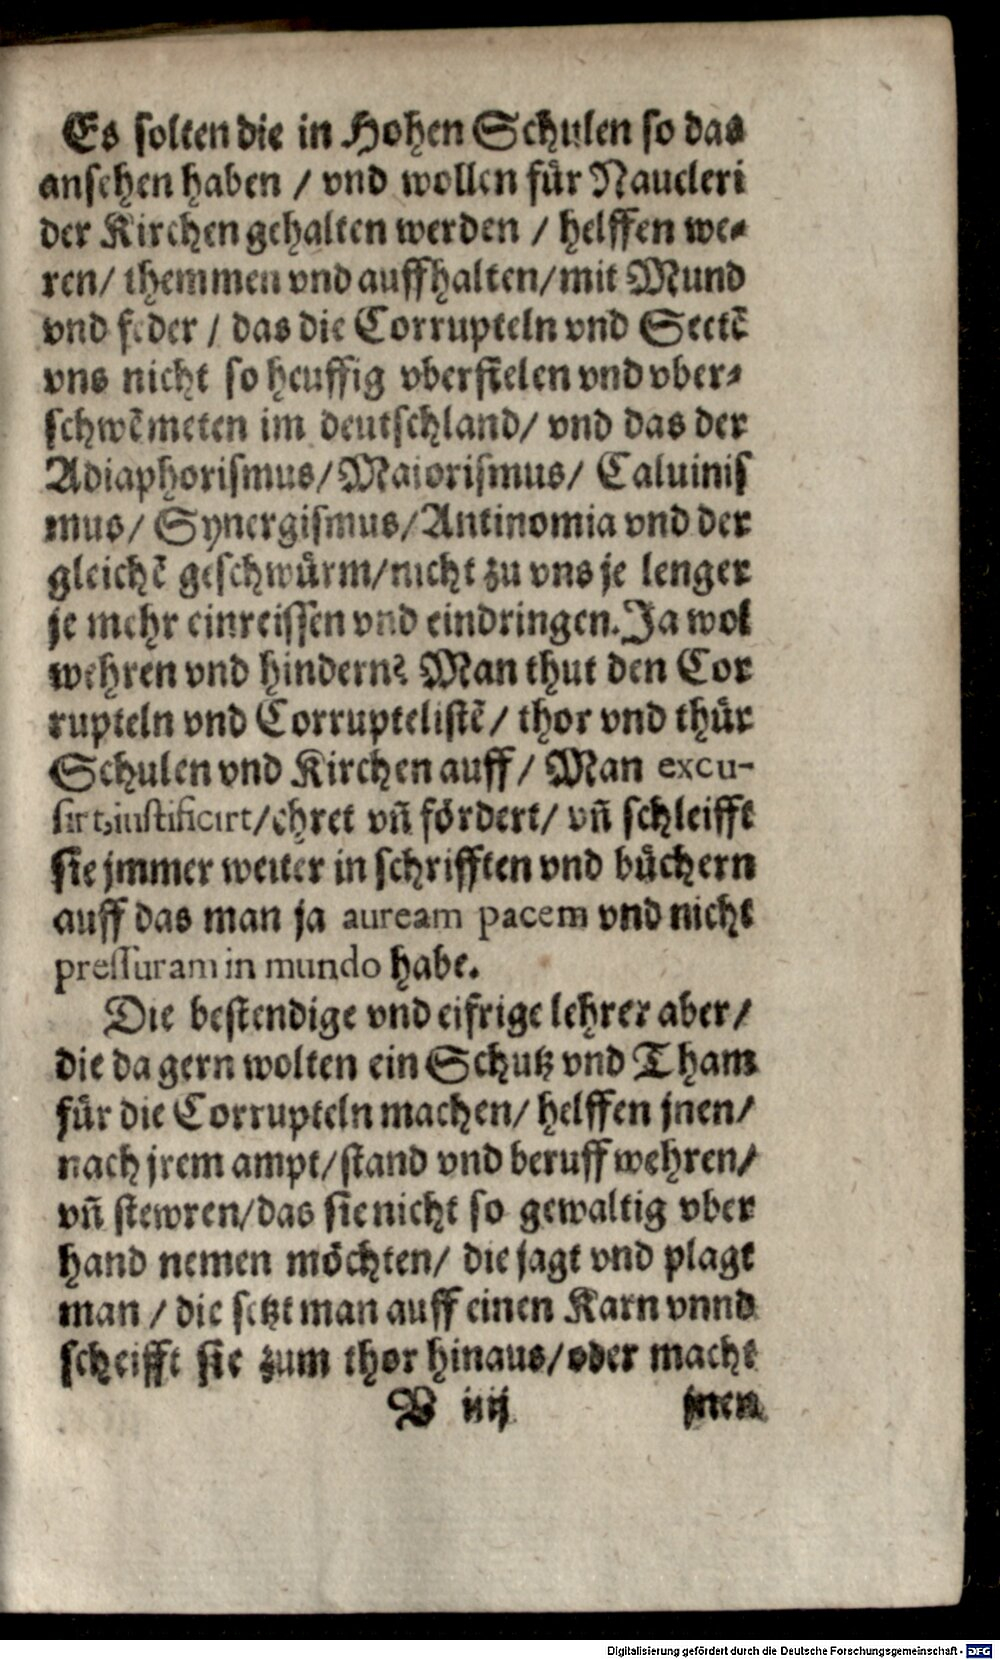 Es solten die in Hohen Schulen so das
ansehen haben / vnd wollen für Naucleri
der Kirchen gehalten werden / helffen we-
ren/ themmen vnd auffhalten/mit Mund
vnd feder / das die Corrupteln vnd Sectē
vns nicht so heuffig vberfielen vnd vber-
schwēmeten im deutschland/ vnd das der
Adiaphorismus/Maiorismus/ Caluinis
mus/ Synergismus/Antinomia vnd der
gleichē geschwürm/nicht zu vns je lenger
je mehr einreissen vnd eindringen. Ja wol
wehren vnd hindern? Man thut den Cor
rupteln vnd Corruptelistē/ thor vnd thür
Schulen vnd Kirchen auff/ Man excu-
sirt,iustificirt/ehret vñ fördert/ vñ schleifft
sie jmmer weiter in schrifften vnd büchern
auff das man ja auream pacem vnd nicht
pressuram in mundo habe.
Die bestendige vnd eifrige lehrer aber/
die da gern wolten ein Schutz vnd Tham
für die Corrupteln machen/ helffen jnen/
nach jrem ampt/stand vnd beruff wehren/
vñ stewren/das sie nicht so gewaltig vber
hand nemen möchten/ die jagt vnd plagt
man / die setzt man auff einen Karn vnnd
schleifft sie zum thor hinaus/oder macht
V iiij jnen
Digitalisierung gefördert durch die Deutsche Forschungsgemeinschaft - DFG